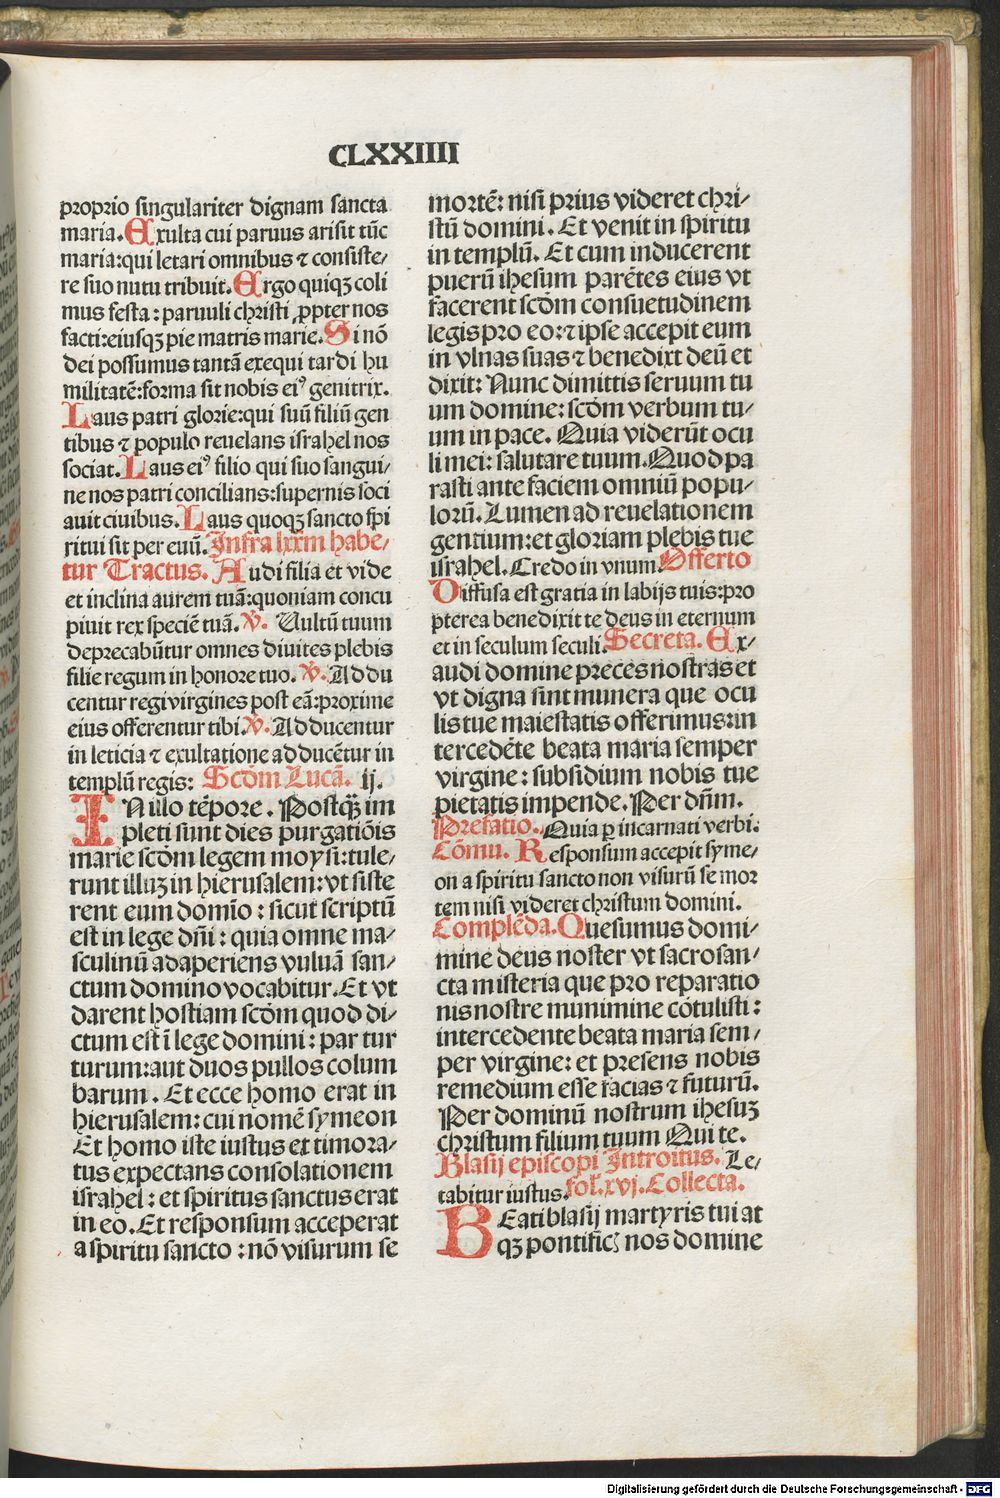 CLXXIIII
proprio singulariter dignam sancta
maria. Exulta cui paruus arisit tūc
maria: qui letari omnibus ⁊ consiste/
re suo nutu tribuit. Ergo quiqꝫ coli
mus festa: paruuli christi ꝓpter nos
facti: eiusqꝫ pie matris marie. Si nō
dei possumus tantā exequi tardi hu
militatē: forma sit nobis eiꝰ genitrix.
Laus patri glorie: qui suū filiū gen
tibus ⁊ populo reuelans israhel nos
sociat. Laus eiꝰ filio qui suo sangui/
ne nos patri concilians: supernis soci
auit ciuibus. Laus quoqꝫ sancto spi
ritui sit per euū. Infra lxxm habe/
tur Tractus. Audi filia et vide
et inclina aurem tuā: quoniam concu
piuit rex speciē tuā. V̛. Uultū tuum
deprecabūtur omnes diuites plebis
filie regum in honore tuo. V̛. Addu
centur regi virgines post eā: proxime
eius offerentur tibi. V̛. Adducentur
in leticia ⁊ exultatione adducētur in
templū regis: Scdm̄ Lucā. ij.
IN illo tēpore. Postqꝫ im
pleti sunt dies purgatiōis
marie scdm̄ legem moysi: tule/
runt illuꝫ in hierusalem: vt siste
rent eum domīo: sicut scriptū
est in lege dn̄i: quia omne ma/
sculinū adaperiens vuluā san/
ctum domino vocabitur. Et vt
darent hostiam scdm̄ quod di/
ctum est ī lege domini: par tur
turum: aut duos pullos colum
barum. Et ecce homo erat in
hierusalem: cui nomē symeon
Et homo iste iustus et timora/
tus expectans consolationem
israhel: et spiritus sanctus erat
in eo. Et responsum acceperat
a spiritu sancto: nō visurum se
mortē: nisi prius videret chri/
stū domini. Et venit in spiritu
in templū. Et cum inducerent
puerū ihesum parētes eius vt
facerent scdm̄ consuetudinem
legis pro eo: ⁊ ipse accepit eum
in vlnas suas ⁊ benedixt deū et
dixit: Nunc dimittis seruum tu
um domine: scdm̄ verbum tu/
um in pace. Quia viderūt ocu
li mei: salutare tuum. Quod pa
rasti ante faciem omniū popu/
lorū. Lumen ad reuelationem
gentium: et gloriam plebis tue
israhel. Credo in vnum Offerto
Diffusa est gratia in labijs tuis: pro
pterea benedixit te deus in eternum
et in seculum seculi. Secreta. Ex/
audi domine preces nostras et
vt digna sint munera que ocu
lis tue maiestatis offerimus: in
tercedēte beata maria semper
virgine: subsidium nobis tue
pietatis impende. Per dn̄m.
Prefatio. Quia ꝑ incarnati verbi.
Cōmu. Responsum accepit syme/
on a spiritu sancto non visurū se mor
tem nisi videret christum domini.
Complēda. Quesumus domi/
mine deus noster vt sacrosan/
cta misteria que pro reparatio
nis nostre munimine cōtulisti:
intercedente beata maria sem/
per virgine: et presens nobis
remedium esse facias ⁊ futurū.
Per dominū nostrum ihesuꝫ
christum filium tuum Qui te.
Blasij episcopi Introitus. Le/
tabitur iustus. fol. xvj. Collecta.
BEati blasij martyris tui at
qꝫ pontific̄ nos domine
Digitalisierung gefördert durch die Deutsche Forschungsgemeinschaft - DFG